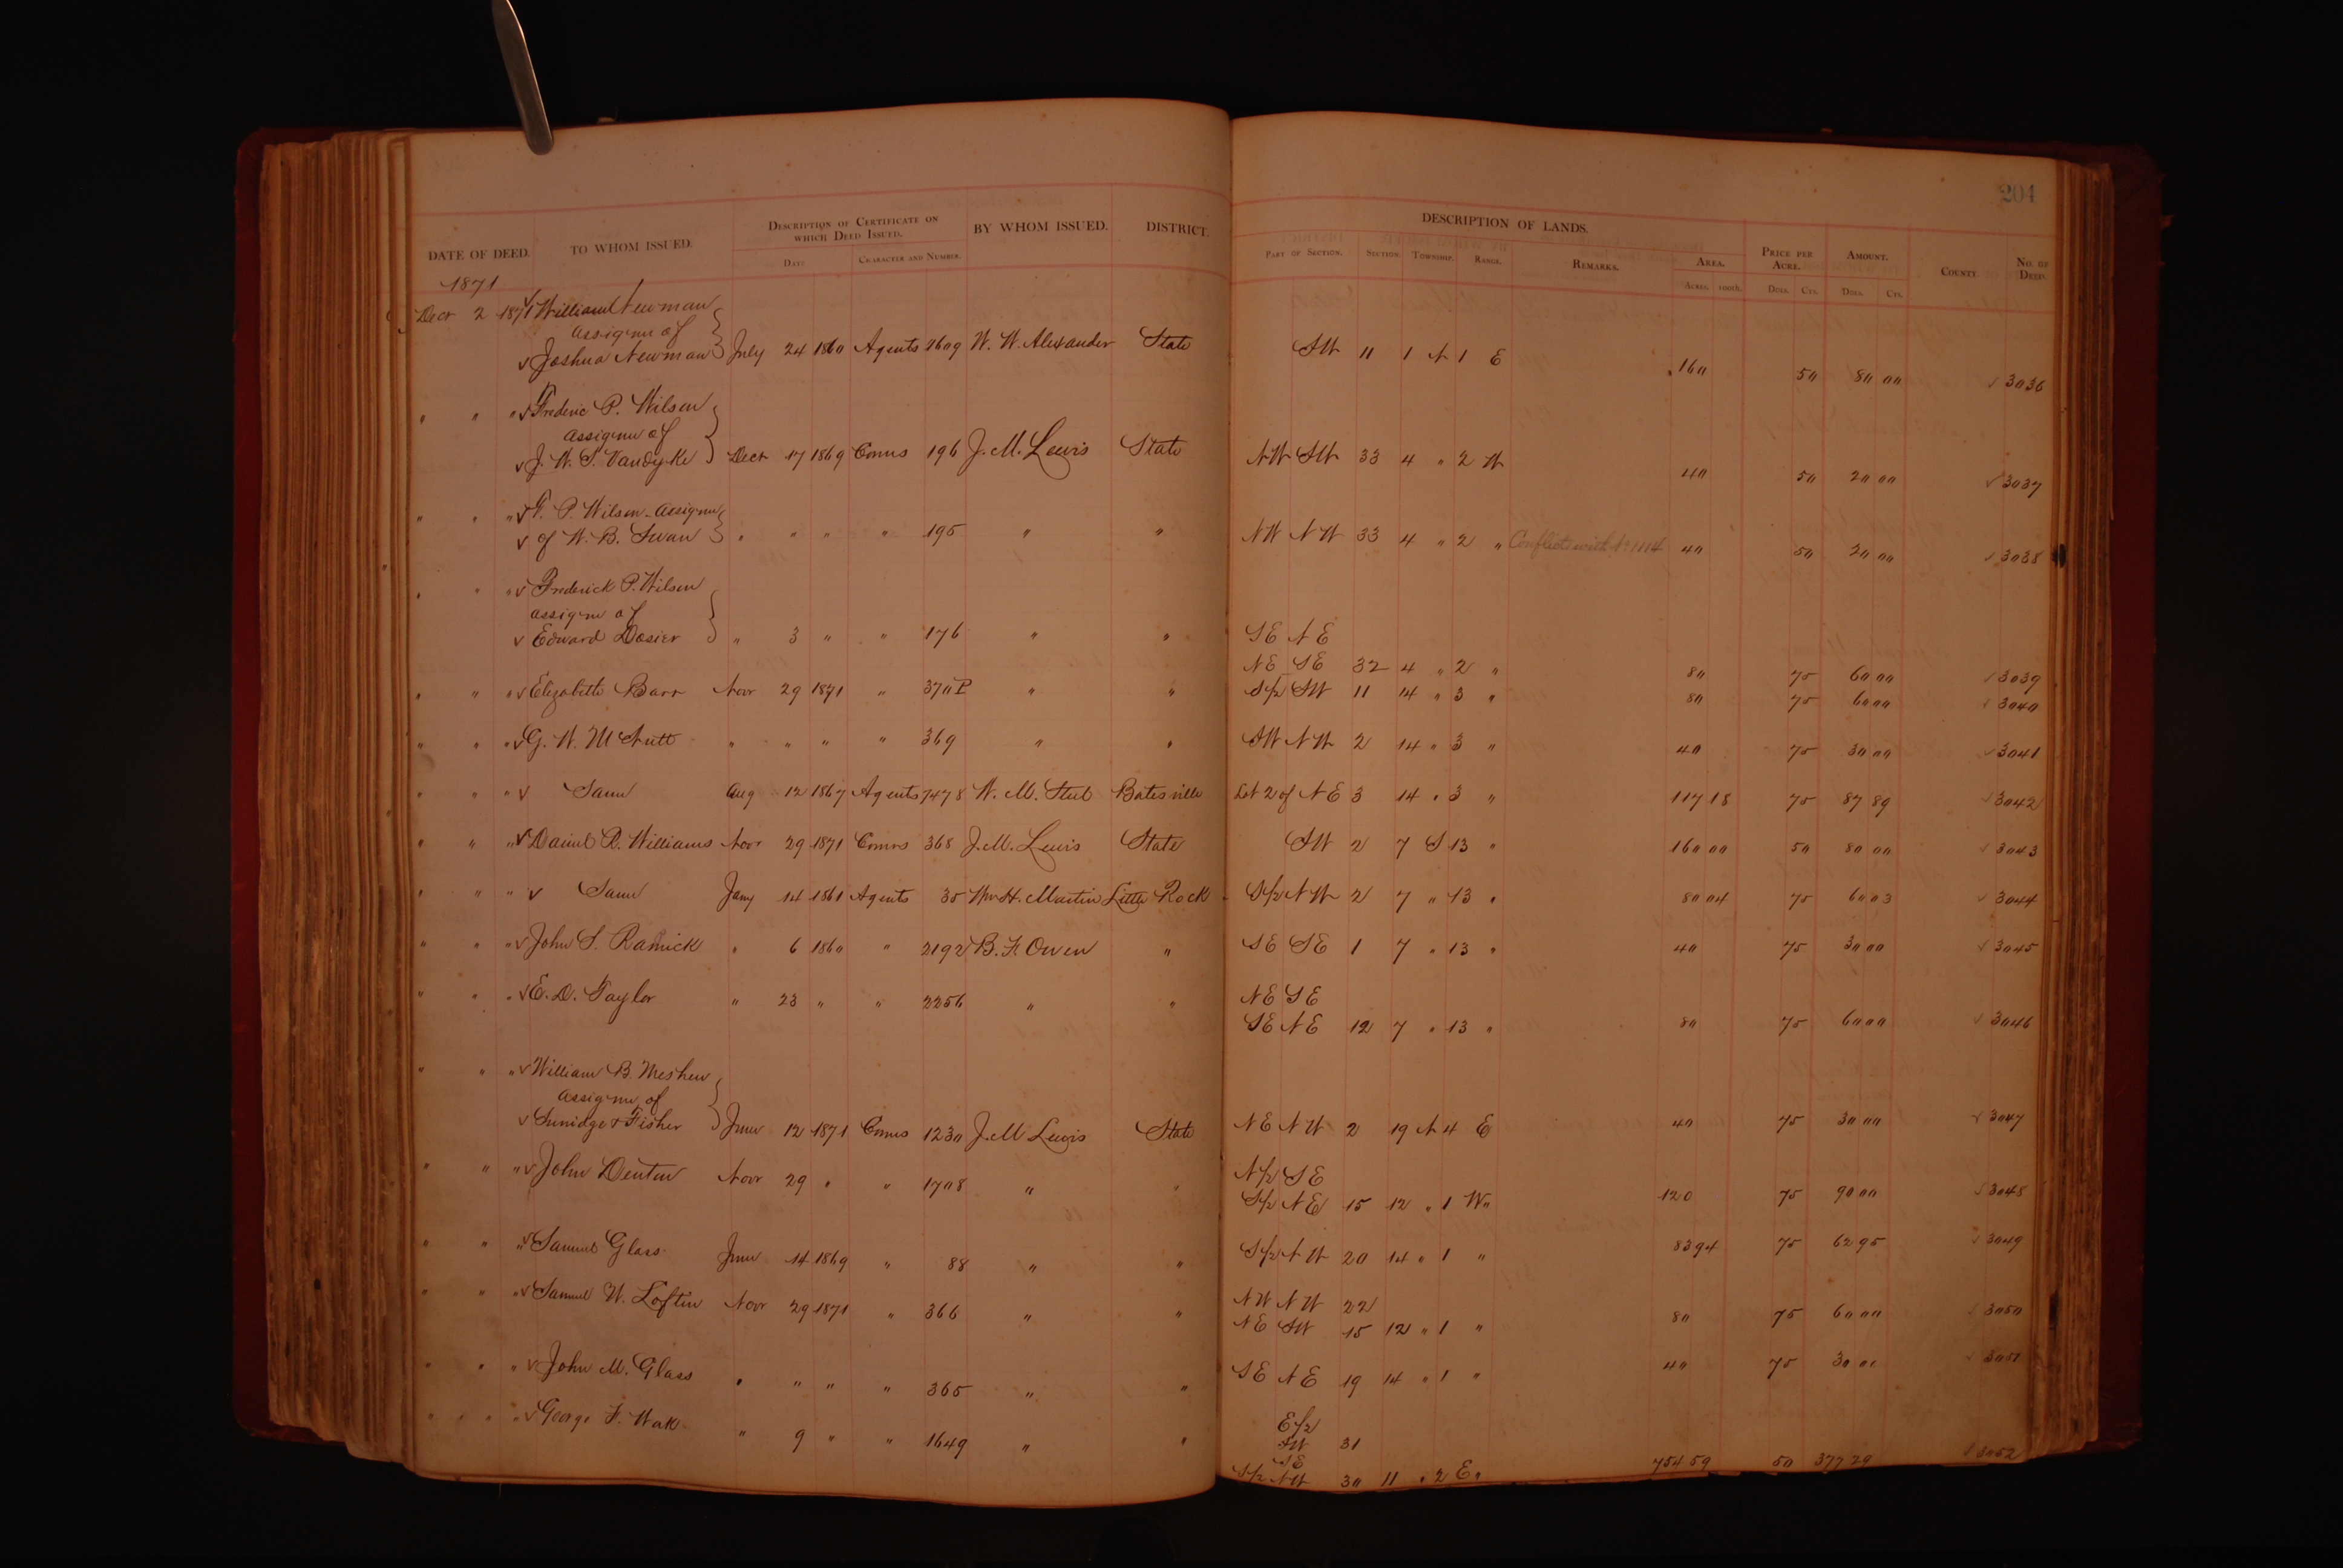 204
DESCRIPTION OF CERTIFICATE ON DESCRIPTION OF LANDS.
DATE OF DEED. TO WHOM ISSUED. WHICH DEED ISSUED. BY WHOM ISSUED. DISTRICT. PART OF SECTION. SECTION. TOWNSHIP. RANGE. REMARKS. AREA. PRICE PER ACRE. AMOUNT. COUNTY NO. OF DEED.
DATE CHARACTER AND NUMBER. ACRES. 100TH. DOLL. CTS. DOLL. CTS.
1871
Decr 2 1871 William Newman
assignee of
Joshua Newman July 24 1860 Agents W. W. Alexander State SW 11 1 N 1 E 160 50 80 00 3036
" " " Frederic P. Wilson
assignee of
J. W. S. Vandyke Decr 17 1869 Comrs 196 J. M. Lewis State NW SW 33 4 " 2 W 40 50 20 00 3037
" " " F. P. Wilson assignee
of W. B. Swan " " " " 195 " " NW NW 33 4 " 2 " Conflicts with No 1114 40 50 20 00 3038
" " " Frederick P. Wilson
assignee of
Edward Dosier " 3 " " 176 " " SE NE
NE SE 32 4 " 2 " 80 75 60 00 3039
" " " Elizabeth Barr Novr 29 1871 " 370 P " " S/2 SW 11 14 " 3 " 80 75 60 00 3040
" " " G. W. McNutt " " " " 369 " " SW NW 2 14 " 3 " 40 75 30 00 3041
" " " Same Aug 12 1867 Agents 7478 W. M. Batesville Lot 2 of NE 3 14 " 3 " 117 18 75 87 89 3042
" " " Daniel R. Williams Novr 29 1871 Comrs 368 J. M. Lewis State SW 2 7 S 13 " 160 00 50 80 00 3043
" " " Same Jany 14 1861 Agents 35 Wm H. Martin Little Rock S/2 NW 2 7 " 13 " 80 04 75 60 03 3044
" " " John S. " 6 1860 " 2192 B. F. Owen " SE SE 1 7 " 13 " 40 75 30 00 3045
" " " E. D. Taylor " 23 " " 2256 " " NE SE
SE NE 12 7 " 13 " 80 75 60 00 3046
" " " William B. Meshew
assignee of
& Fisher June 12 1871 Comrs 1230 J. M. Lewis State NE NW 2 19 N 4 E 40 75 30 00 3047
" " " John Denton Novr 29 " " 1708 " " N/2 SE
S/2 NE 15 12 " 1 W " 120 75 90 00 3048
" " " Samuel Glass June 14 1869 " 88 " " S/2 NW 20 14 " 1 " 83 94 75 62 95 3049
" " " Samuel W. Loftin Novr 29 1871 " 366 " " NW NW 22
NE SW 15 12 " 1 " 80 75 60 00 3050
" " " John M. Glass " " " " 365 " " SE NE 19 14 " 1 " 40 75 30 00 3051
" " " George F. " 9 " " 1649 " " E/2
SW 31
SE
S/2 NW 30 11 " 2 E " 754 59 50 377 29 3052